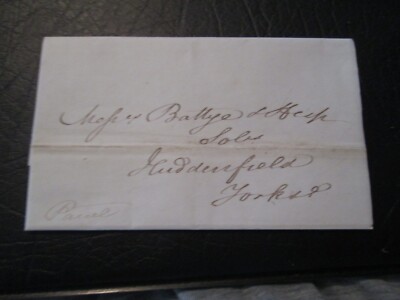 Messrs Battye & Hesp
Solrs
Huddersfield
Yorks